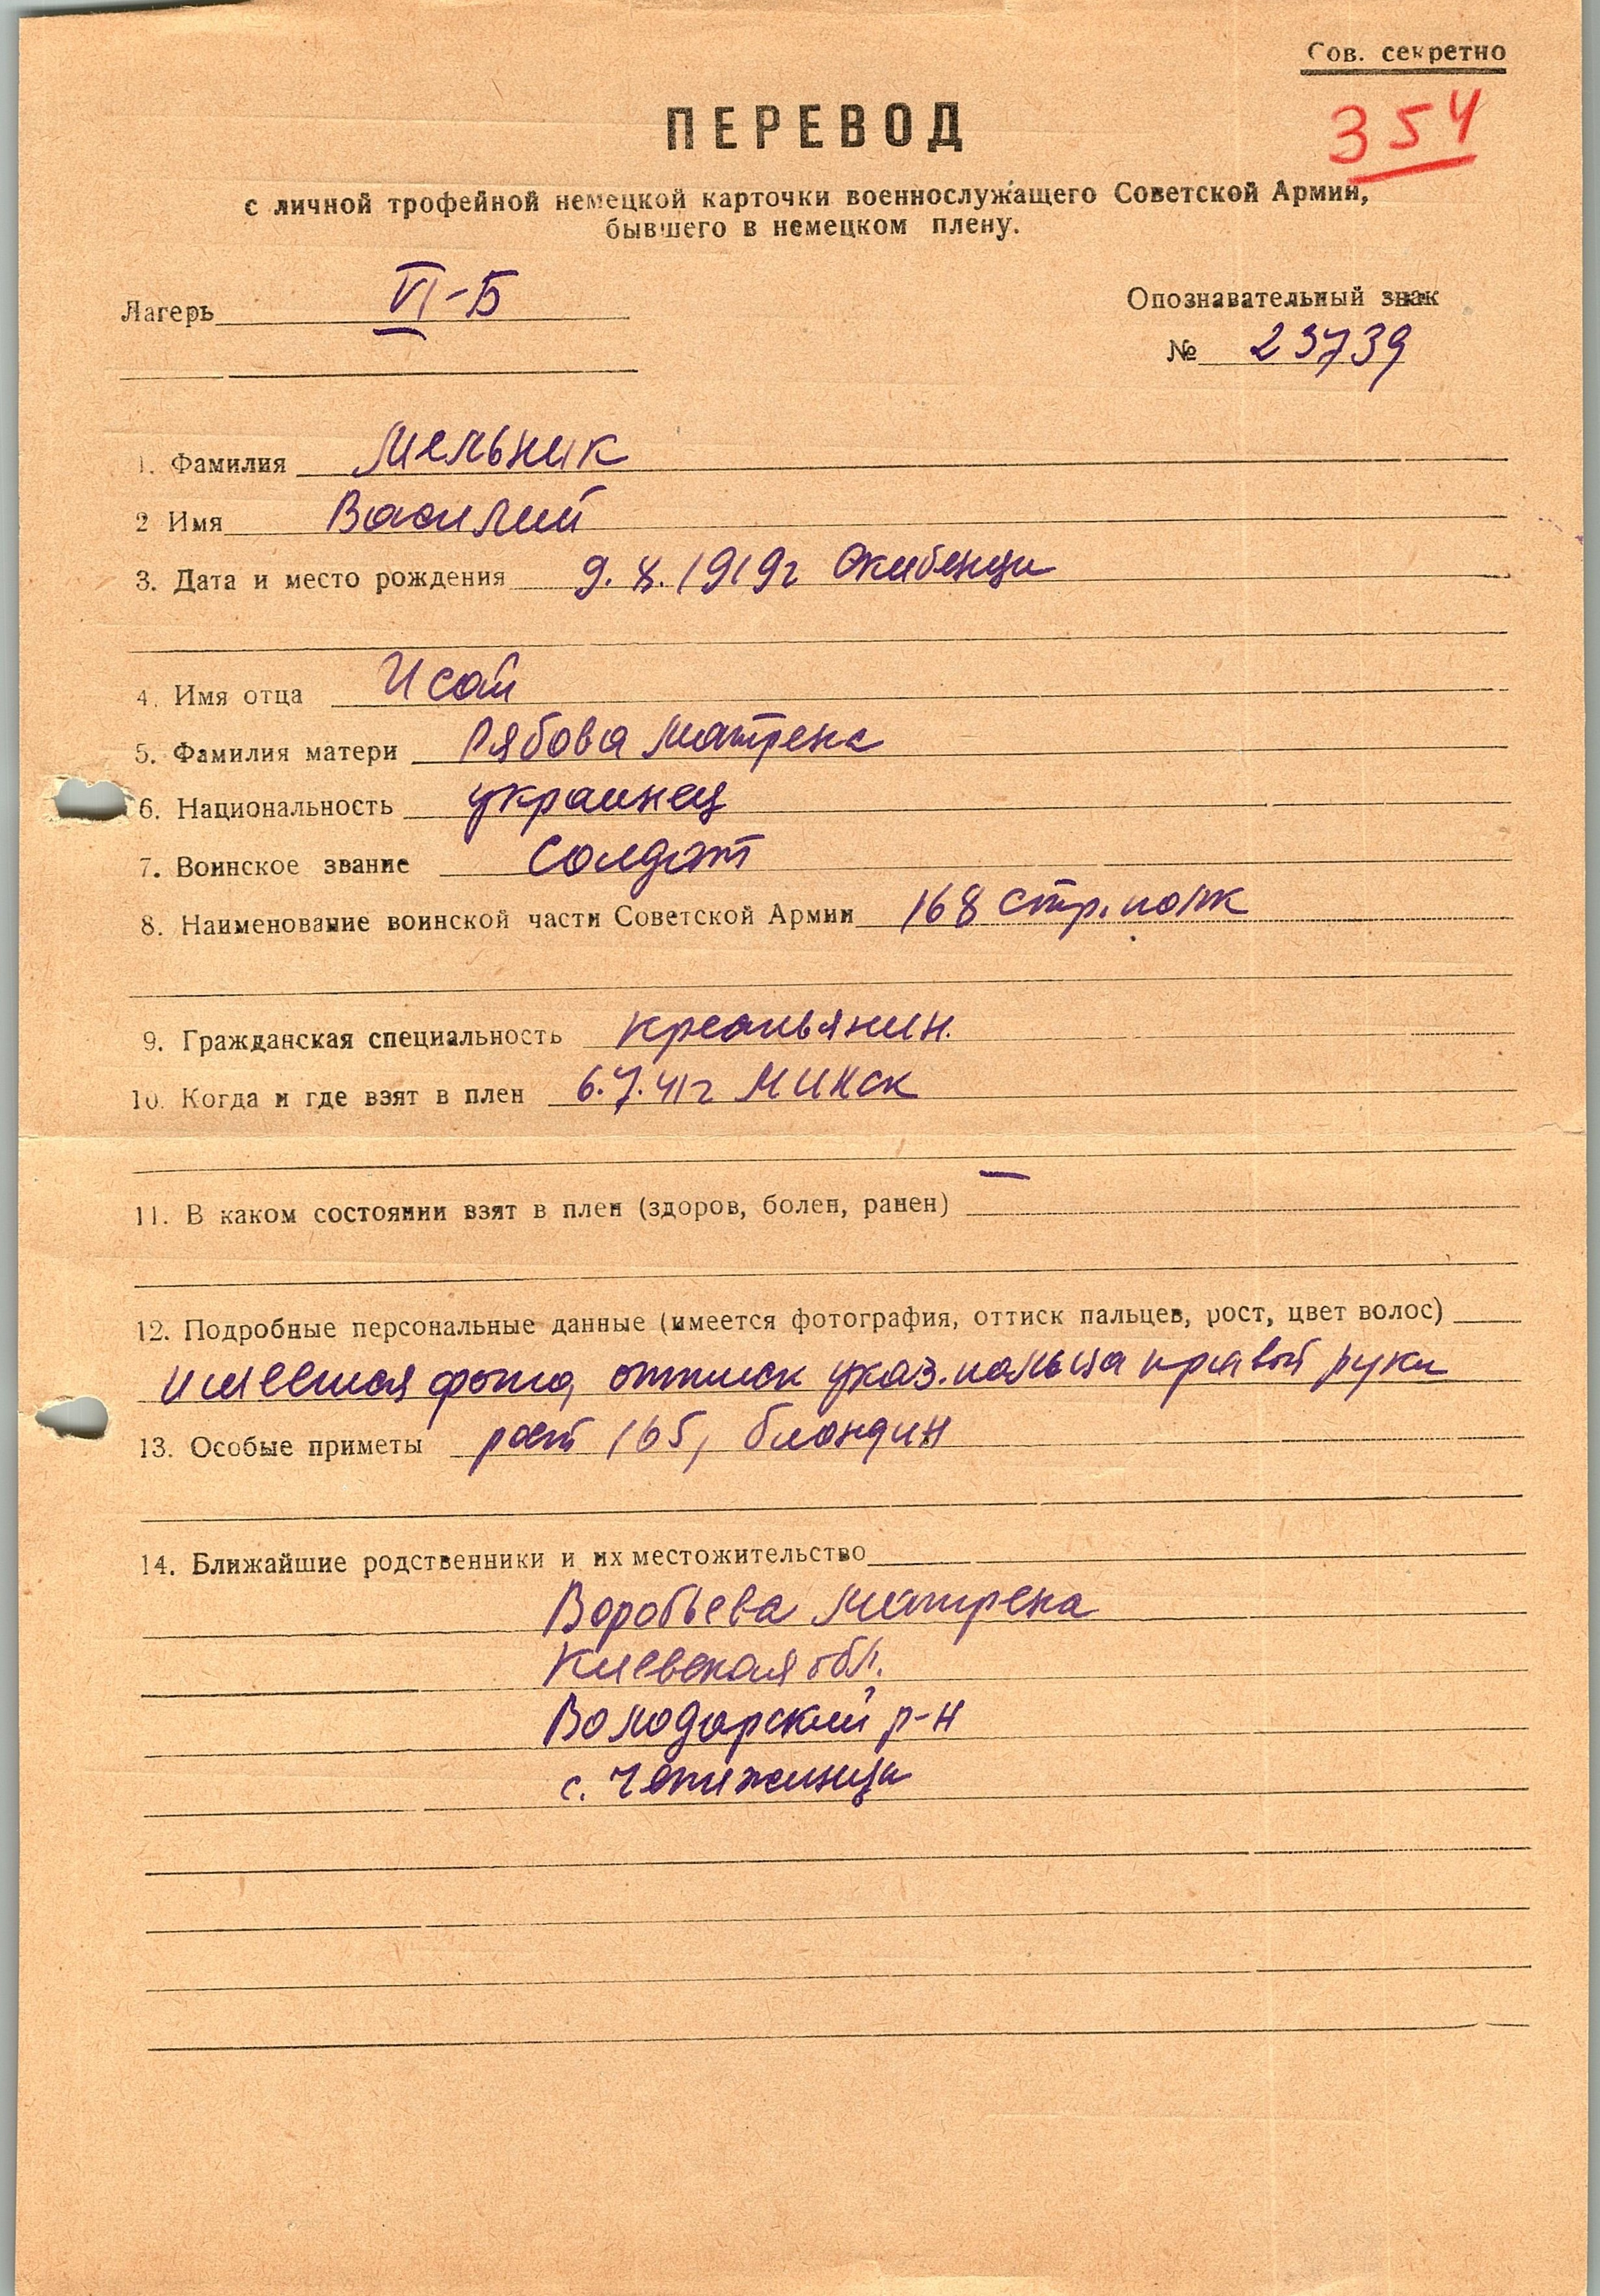 Сов. секретно
354
ПЕРЕВОД
с личной трофейной немецкой карточки военнослужащего Советской Армии,
бывшего в немецком плену.
Лагерь VI-Б
Опознавательный знак
№ 23739
1. Фамилия Мельник
2 Имя Василий
3. Дата и место рождения 9.X.1919г
4. Имя отца Исай
5. Фамилия матери Рябова Матрена
6. Национальность украинец
7. Воинское звание Солдат
8. Наименование воинской части Советской Армии 168 стр. полк
9. Гражданская специальность крестьянин.
10. Когда и где взят в плен 6.7.41г Минск
11. В каком состоянии взят в плен (здоров, болен, ранен) —
12. Подробные персональные данные (имеется фотография, оттиск пальцев, рост, цвет волос)
имеется фото, оттиск указ. пальца правой руки
13. Особые приметы рост 165, блондин
14. Ближайшие родственники и их местожительство
Воробьева Матрена
Киевская обл.
Володарский р-н
с.